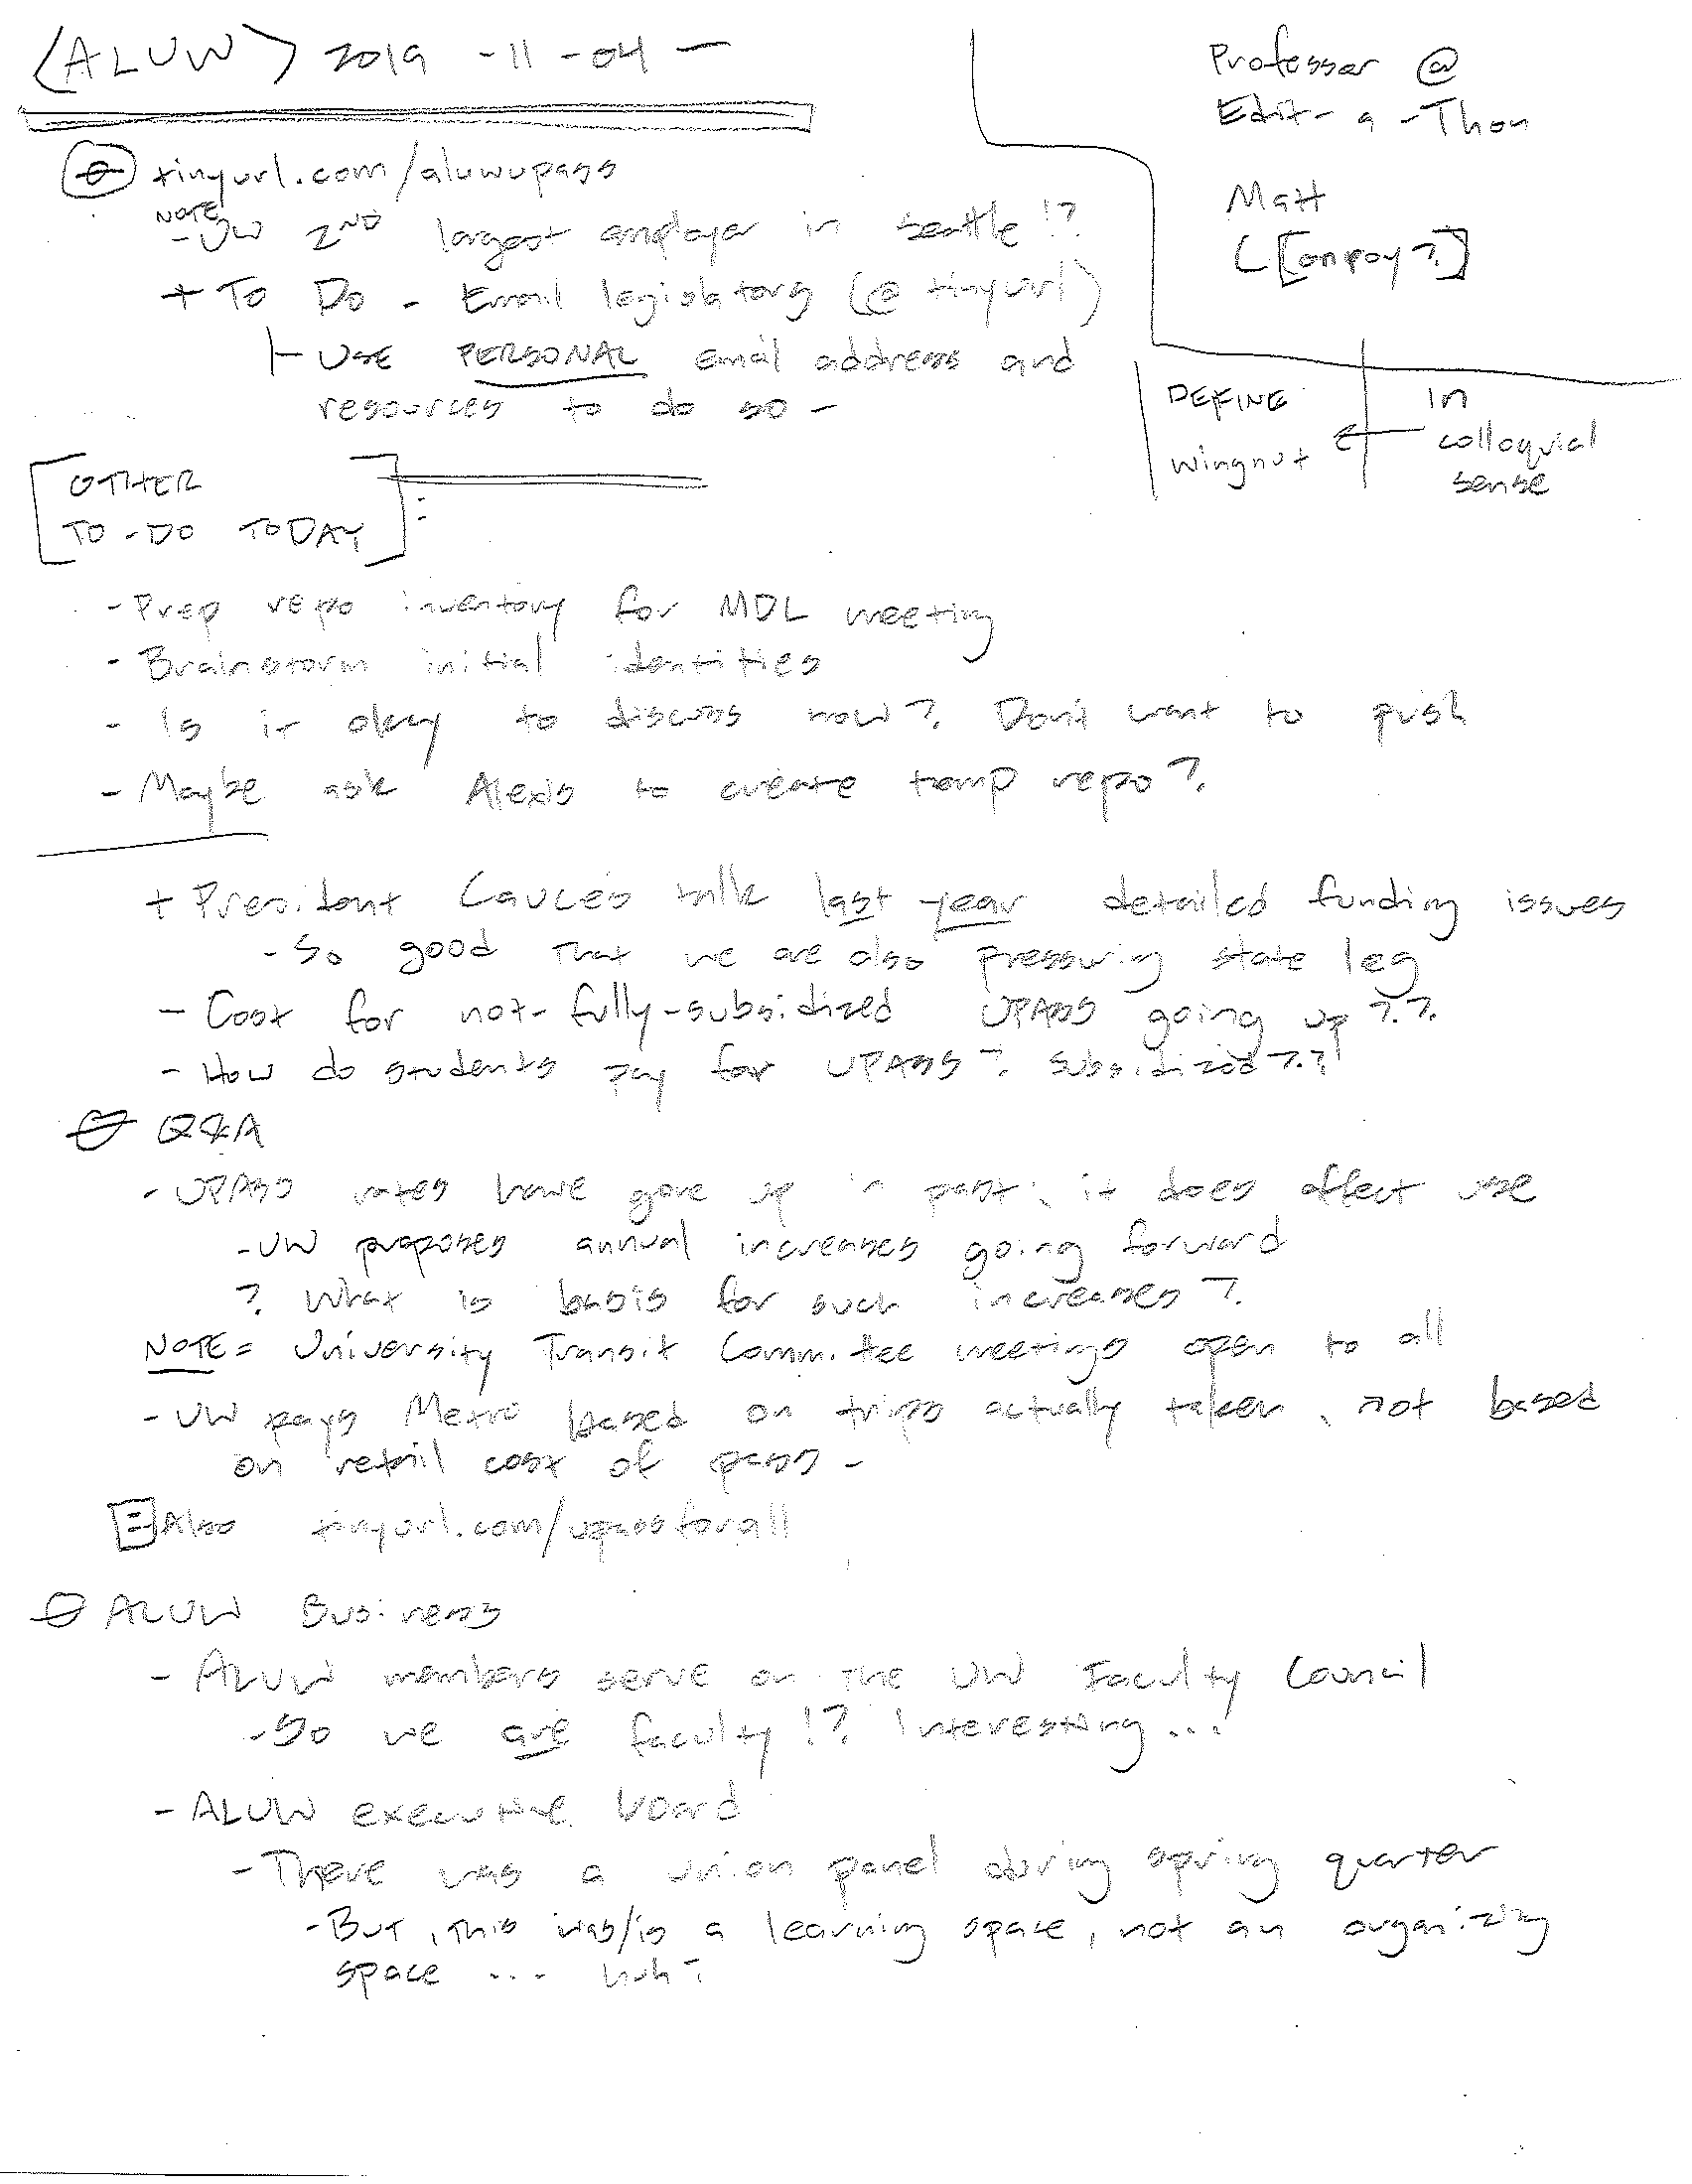 (ALUW) 2019-11-04 —
tinyurl.com/aluwupass
NOTE
- UW 2ND largest employer in Seattle!?
+ To Do - Email legislators (@ tinyurl)
- USE PERSONAL email address and
resources to do so -
Professor @
Edit-a-Thon
Matt
DEFINE
wingnut
in
colloquial
sense
[OTHER
TO-DO TODAY]:
- Prep repo inventory for MDL meeting
- Brainstorm initial identities
- Is it okay to discuss now? Don't want to push
- Maybe ask Alexis to create temp repo?
+ President Cauce's talk last year detailed funding issues
- So good that we are also pressuring state leg
- Cost for not-fully-subsidized UPASS going up??
- How do students pay for UPASS? Subsidized??
Q&A
- UPASS rates have gone up in past; it does affect use
- UW proposes annual increases going forward
? What is basis for such increases?
NOTE = University Transit Committee meetings open to all
- UW pays Metro based on trips actually taken, not based
on retail cost of pass -
Also tinyurl.com/upassforall
ALUW Business
- ALUW members serve on the UW Faculty Council
- So we are faculty!? Interesting...
- ALUW executive board
- There was a union panel during spring quarter
- But, this was/is a learning space, not an organizing
space ... huh?